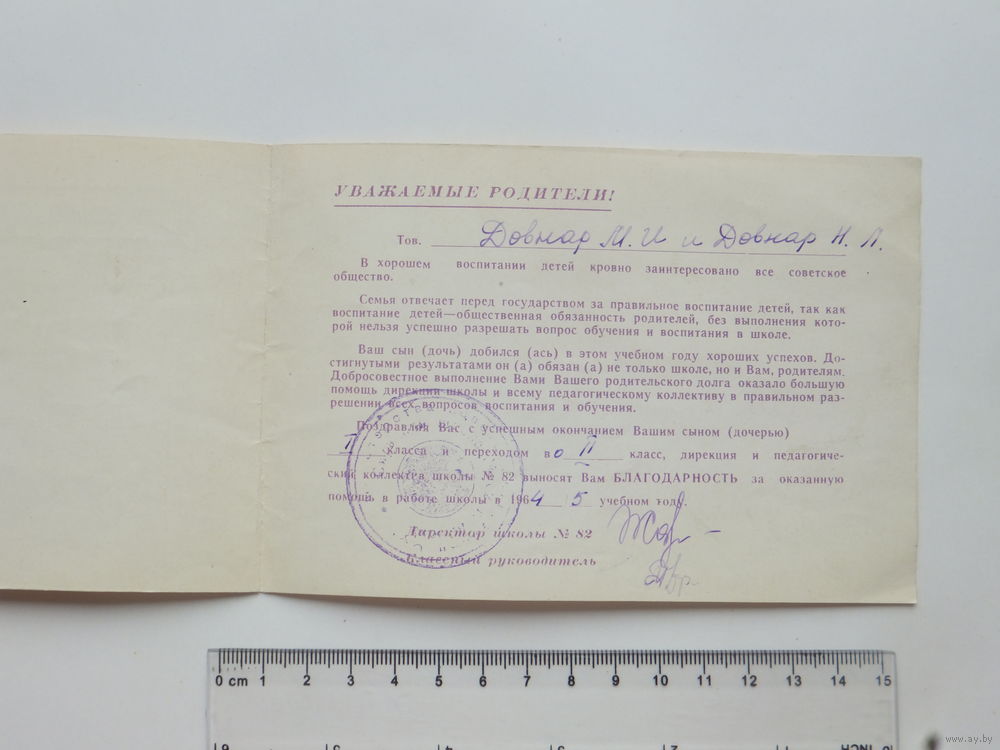 УВАЖАЕМЫЕ РОДИТЕЛИ!
Тов. Довнар М. И и Довнар Н. Л.
В хорошем воспитании детей кровно заинтересовано все советское
общество.
Семья отвечает перед государством за правильное воспитание детей, так как
воспитание детей—общественная обязанность родителей, без выполнения кото-
рой нельзя успешно разрешать вопрос обучения и воспитания в школе.
Ваш сын (дочь) добился (ась) в этом учебном году хороших успехов. До-
стигнутыми результатами он (а) обязан (а) не только школе, но и Вам, родителям.
Добросовестное выполнение Вами Вашего родительского долга оказало большую
помощь дирекции школы и всему педагогическому коллективу в правильном раз-
решении всех вопросов воспитания и обучения.
Поздравляя Вас с успешным окончанием Вашим сыном (дочерью)
I класса и переходом во II класс, дирекция и педагогиче-
ский коллектив школы № 82 выносят Вам БЛАГОДАРНОСТЬ за оказанную
помощь в работе школы в 1964 5 учебном году.
Директор школы № 82
Классный руководитель
0 cm 1 2 3 4 5 6 7 8 9 10 11 12 13 14 15
INCH
www.ay.by